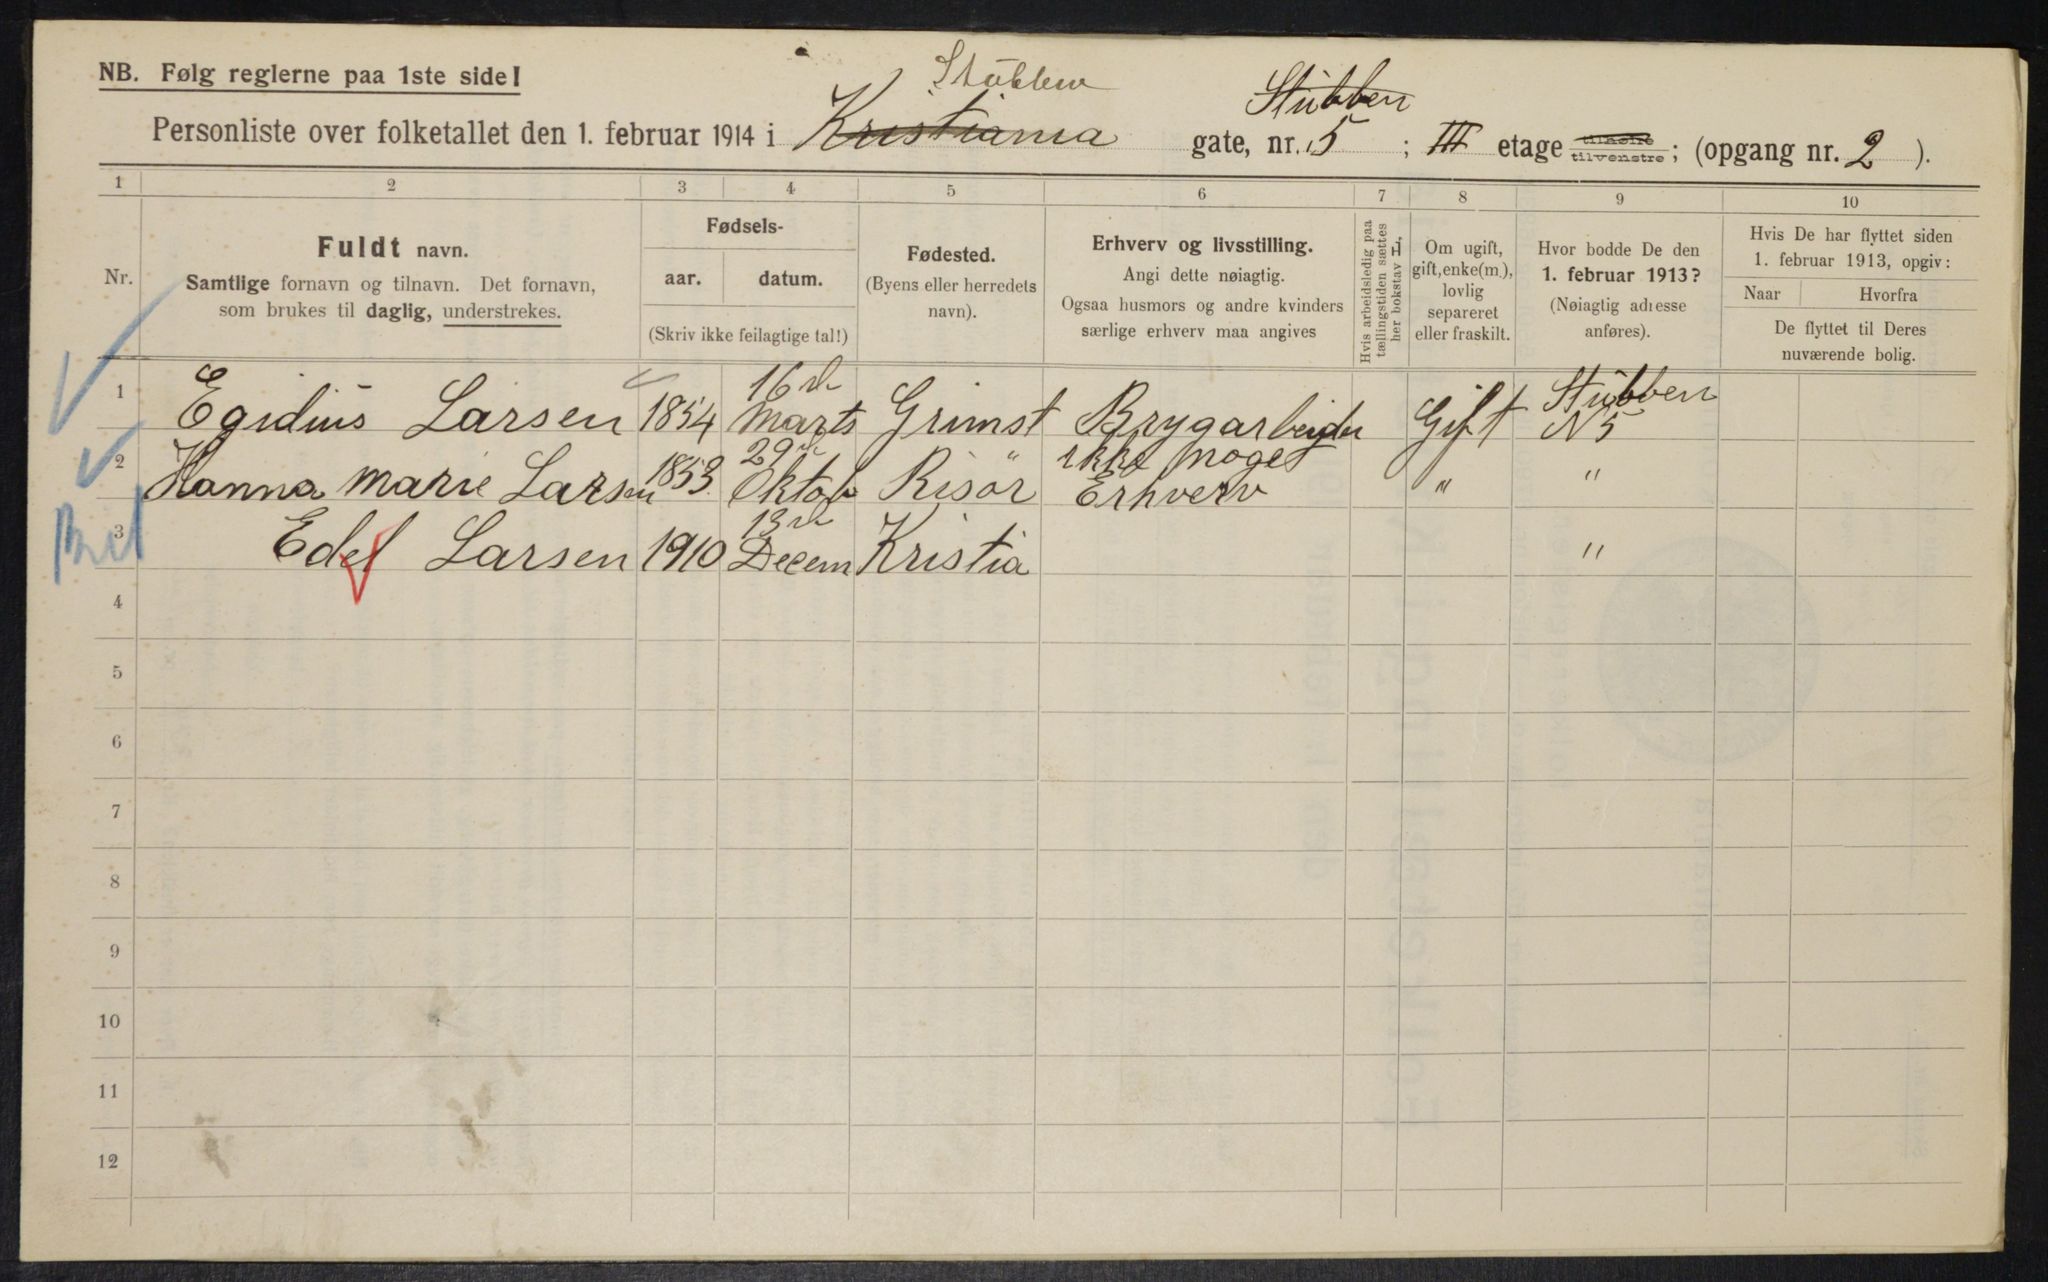 NB. Følg reglerne paa 1ste side!
Stubben
Personliste over folketallet den 1. februar 1914 i Kristiania Stubben gate, nr. 5 ; III etage tilhøire tilvenstre ; (opgang nr. 2 ).
1 2 3 4 5 6 7 8 9 10
Nr.
Fuldt navn.
Samtlige fornavn og tilnavn. Det fornavn,
som brukes til daglig, understrekes.
Fødsels-
aar. datum.
(Skriv ikke feilagtige tal!)
Fødested.
(Byens eller herredets
navn).
Erhverv og livsstilling.
Angi dette nøiagtig.
Ogsaa husmors og andre kvinders
særlige erhverv maa angives
Hvis arbeidsledig paa
tællingstiden sættes
her bokstav L.
Om ugift,
gift, enke(m.),
lovlig
separeret
eller fraskilt.
Hvor bodde De den
1. februar 1913?
(Nøiagtig adresse
anføres).
Hvis De har flyttet siden
1. februar 1913, opgiv:
Naar Hvorfra
De flyttet til Deres
nuværende bolig.
1 Egidius Larsen 1854 16de Marts Grimst Brygarbeider Gift Stubben N 5
2 Hanna Marie Larsen 1853 29 Oktob Risör ikke noget Erhverv " "
3 Edel Larsen 1910 13de Decem Kristia "
4
5
6
7
8
9
10
11
12